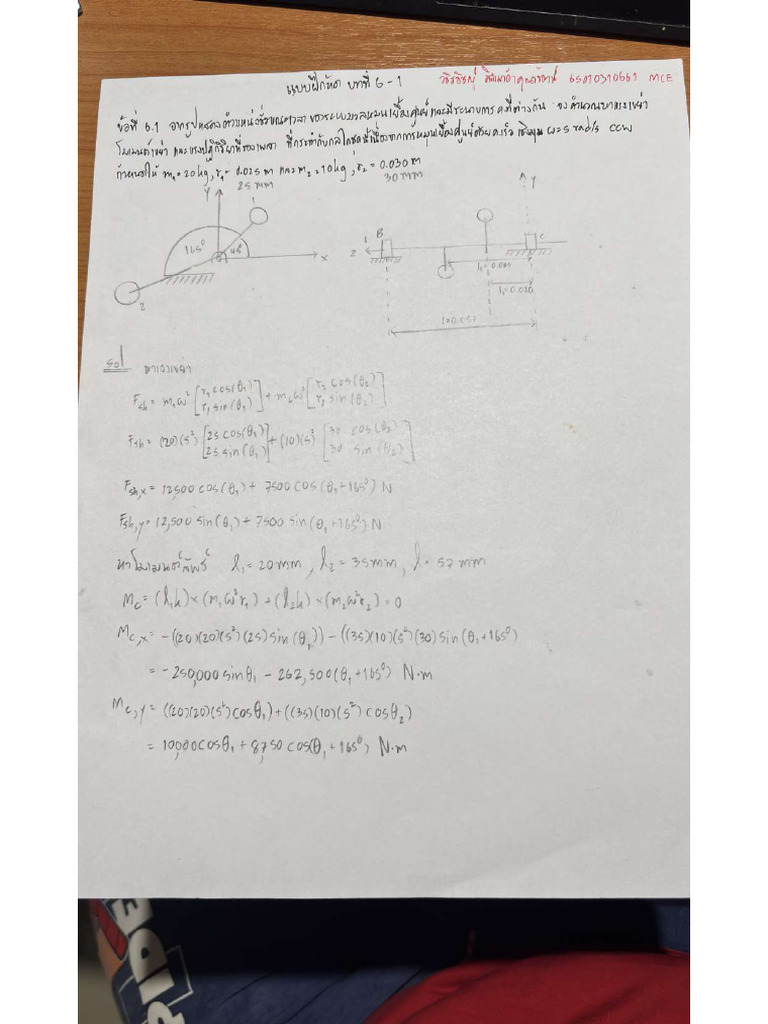 แบบฝึกหัด บทที่ 6-1
65010310661 MCE
ข้อที่ 6.1 จากรูปแสดงตำแหน่งชั่วขณะเวลา ของระบบมวลหมุนเยื้องศูนย์ และมีระนาบการ คงที่ต่างกัน จงคำนวณหาแรงเขย่า
โมเมนต์เขย่า และแรงปฏิกิริยาที่รองเพลา ที่กระทำกับกลไกชุดนี้เนื่องจากการหมุนเยื้องศูนย์ด้วยความเร็ว เชิงมุม ω=5 rad/s CCW
กำหนดให้ m₁=20kg, r₁=0.025 m และ m₂=10kg, r₂=0.030 m
25 mm 30 mm
y
1
165° 45°
x
2
y
B
C
z
l₂=0.035
l₁=0.020
l=0.057
Sol หาแรงเขย่า
F_sh = m₁ω² [r₁ cos(θ₁) r₁ sin(θ₁)] + m₂ω² [r₂ cos(θ₂) r₂ sin(θ₂)]
F_sh = (20)(5²) [25 cos(θ₁) 25 sin(θ₁)] + (10)(5)² [30 cos(θ₂) 30 sin(θ₂)]
F_sh,x = 12,500 cos(θ₁) + 7500 cos(θ₁+165°) N
F_sh,y = 12,500 sin(θ₁) + 7500 sin(θ₁+165°) N
หาโมเมนต์ลัพธ์ l₁=20mm, l₂=35mm, l=57mm
M_c = (l₁k)×(m₁ω²r₁) + (l₂k)×(m₂ω²r₂) = 0
M_c,x = -((20)(20)(5²)(25)sin(θ₁)) - ((35)(10)(5²)(30)sin(θ₁+165°)
= -250,000 sinθ₁ - 262,500(θ₁+165°) N·m
M_c,y = ((20)(20)(5²)cosθ₁) + ((35)(10)(5²)cosθ₂)
= 10,000cosθ₁ + 8,750 cos(θ₁+165°) N·m